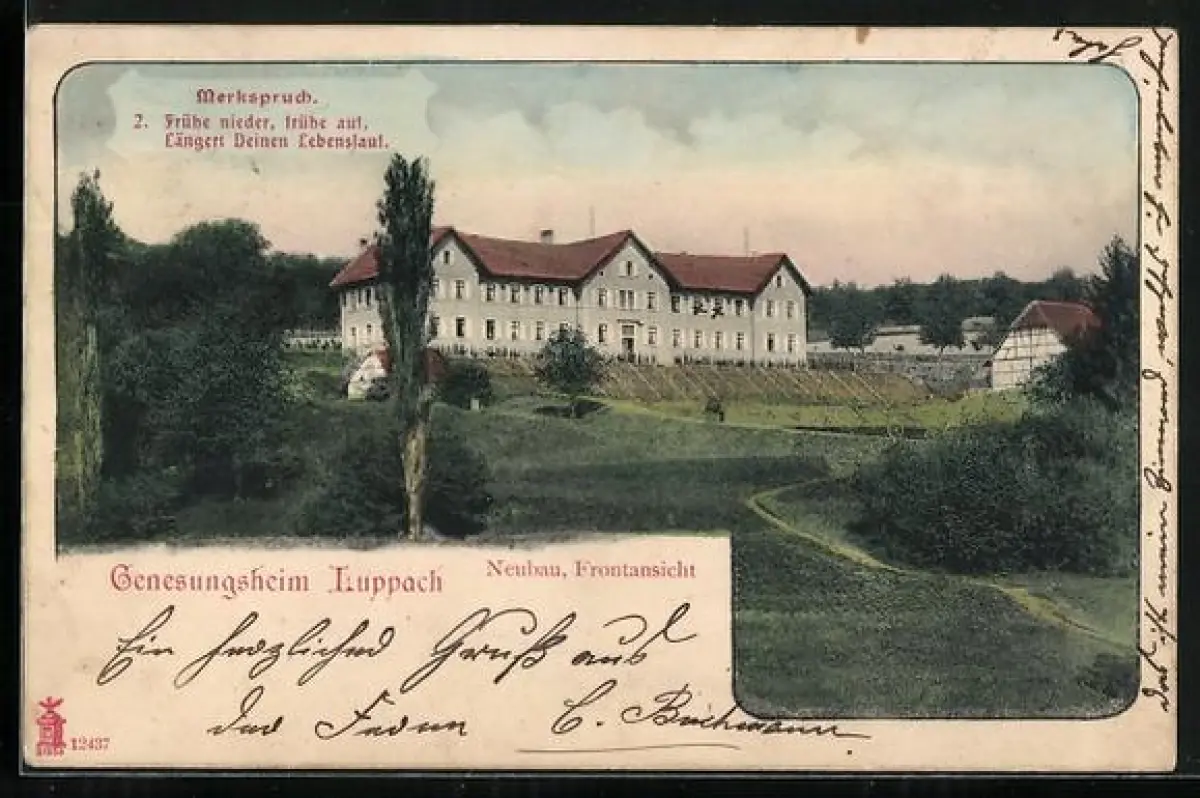 Merkspruch.
2. Frühe nieder, frühe auf,
Längert Deinen Lebenslauf.
Genesungsheim Luppach
Neubau, Frontansicht
Ein herzlicher Gruß aus
der Ferne
C. Buchmann
12437
Das ist mein Zimmer,